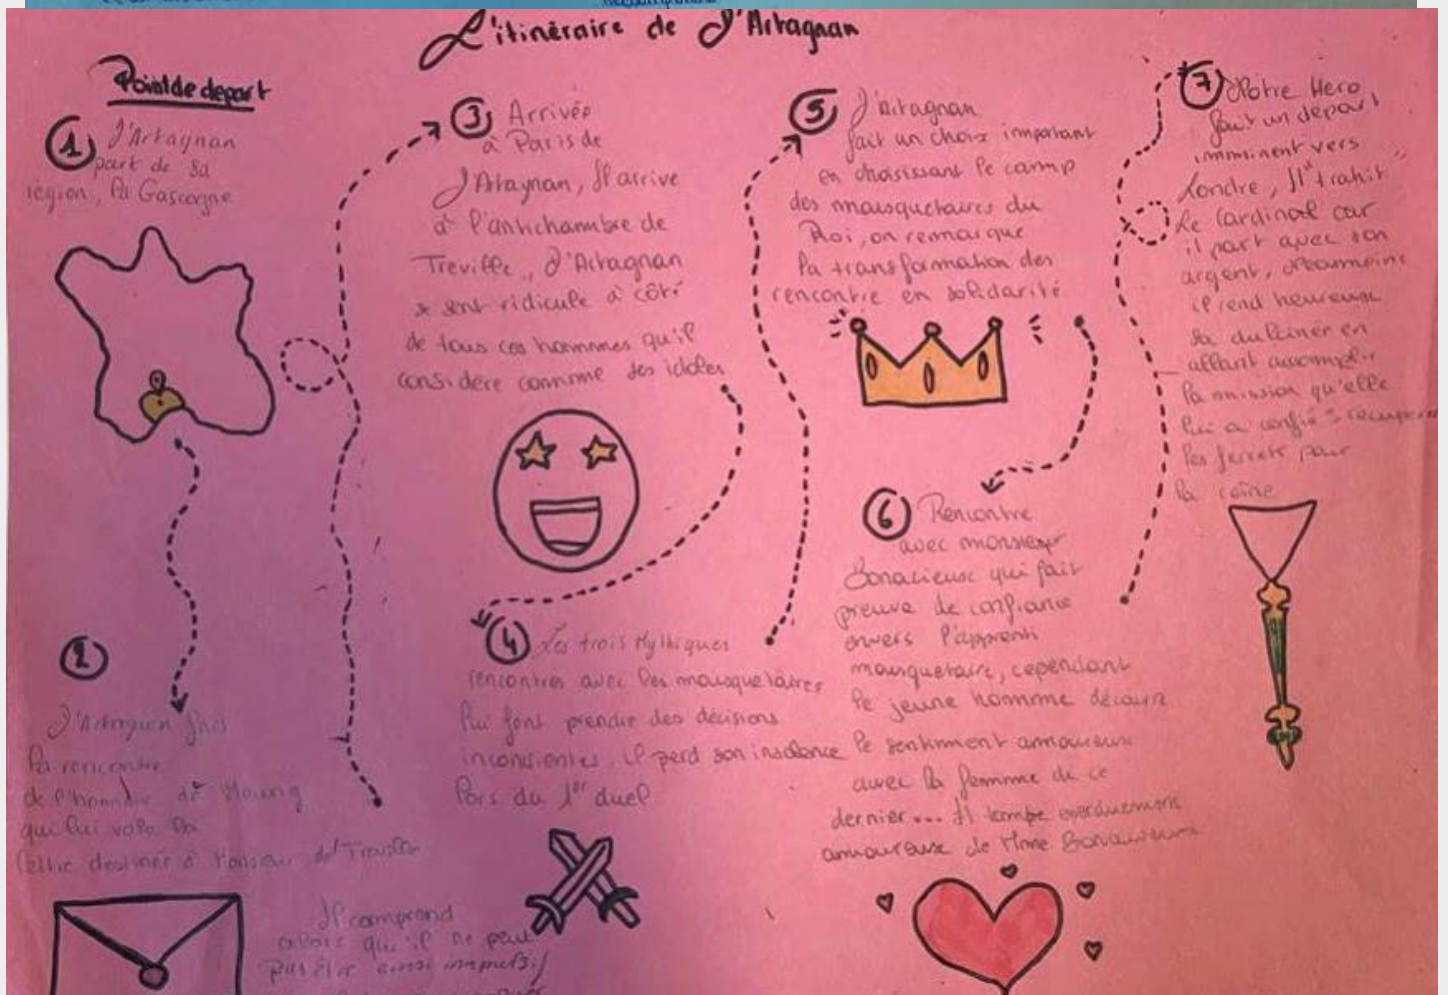 L'itinéraire de D'Artagnan
Point de depart
1 D'Artagnan
part de sa
région, la Gascogne
2
D'Artagnan fais
la rencontre
de l'homme de Meung
qui lui vola la
lettre destinée à Monsieur de Treville
Il comprend
alors qu'il ne peut
pas être aussi impulsif
3 Arrivée
à Paris de
D'Atagnan, Il arrive
à l'antichambre de
Treville, d'Artagnan
se sent ridicule à côté
de tous ces hommes qu'il
considère comme des idoles
4 Les trois Mythiques
rencontres avec les mousquetaires
lui font prendre des décisions
inconscientes, il perd son insolence
lors du 1er duel
5 D'Artagnan
fait un choix important
en choisissant le camp
des mousquetaires du
Roi, on remarque
la transformation des
rencontre en solidarité
6 Rencontre
avec monsieur
Bonacieux qui fait
preuve de confiance
envers l'apprenti
mousquetaire, cependant
le jeune homme découvre
le sentiment amoureux
avec la femme de ce
dernier... Il tombe
amoureux de Mme Bonacieux
7 Notre Hero
fait un depart
imminent vers
Londre, Il "trahit"
le Cardinal car
il part avec son
argent, néanmoins
il rend heureuse
sa dulcinée en
allant accomplir
la mission qu'elle
lui a confié = recuperer
les ferrets pour
la reine